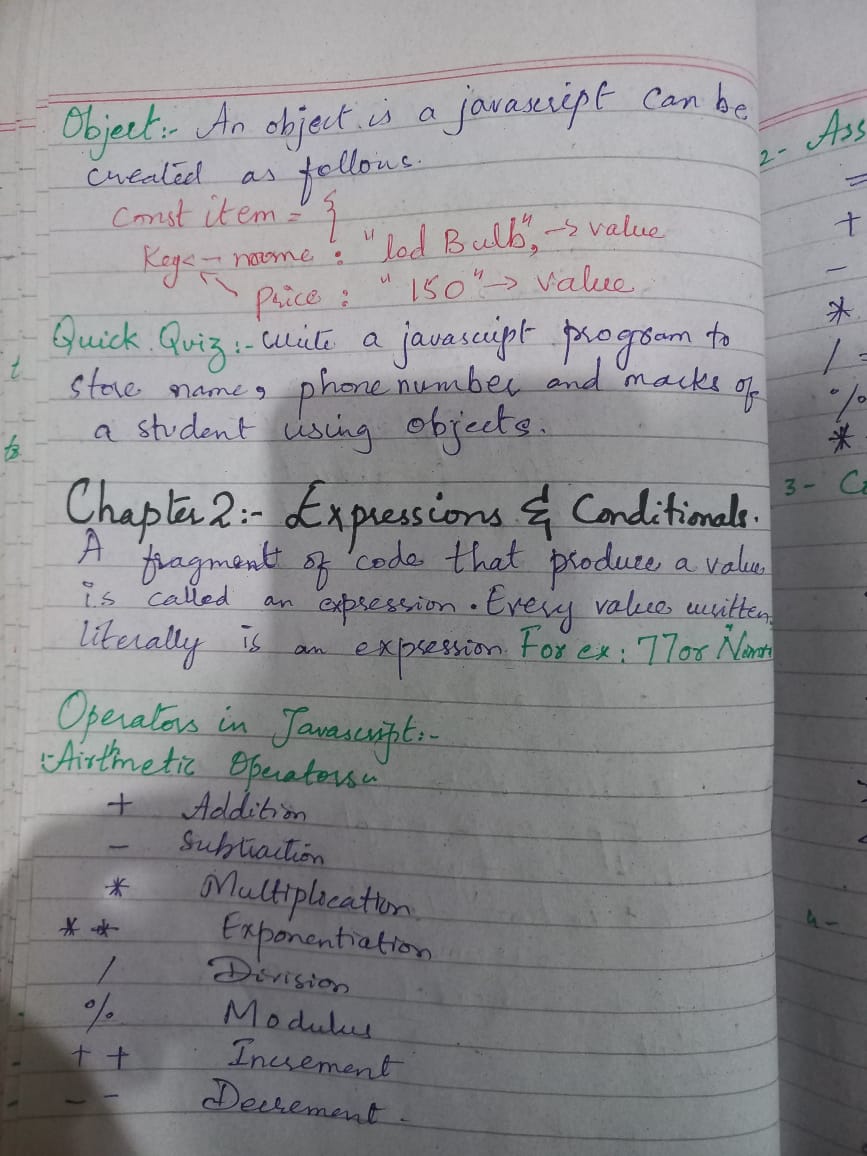 Object:- An object is a javascript can be
created as follows.
Const item = {
Key ← name : "led Bulb", → value
Price : "150" → value
Quick Quiz :- write a javascript program to
store name, phone number and marks of
a student using objects.
Chapter 2 :- Expressions & Conditionals.
A fragment of code that produce a value
is called an expression. Every value written
literally is an expression. For ex: 77 or
Operators in Javascript:-
Airthmetic Operators
+ Addition
- Subtraction
* Multiplication
** Exponentiation
/ Division
% Modulus
++ Increment
-- Decrement.
2- Ass
=
+
-
*
/
%
*
3-
4-